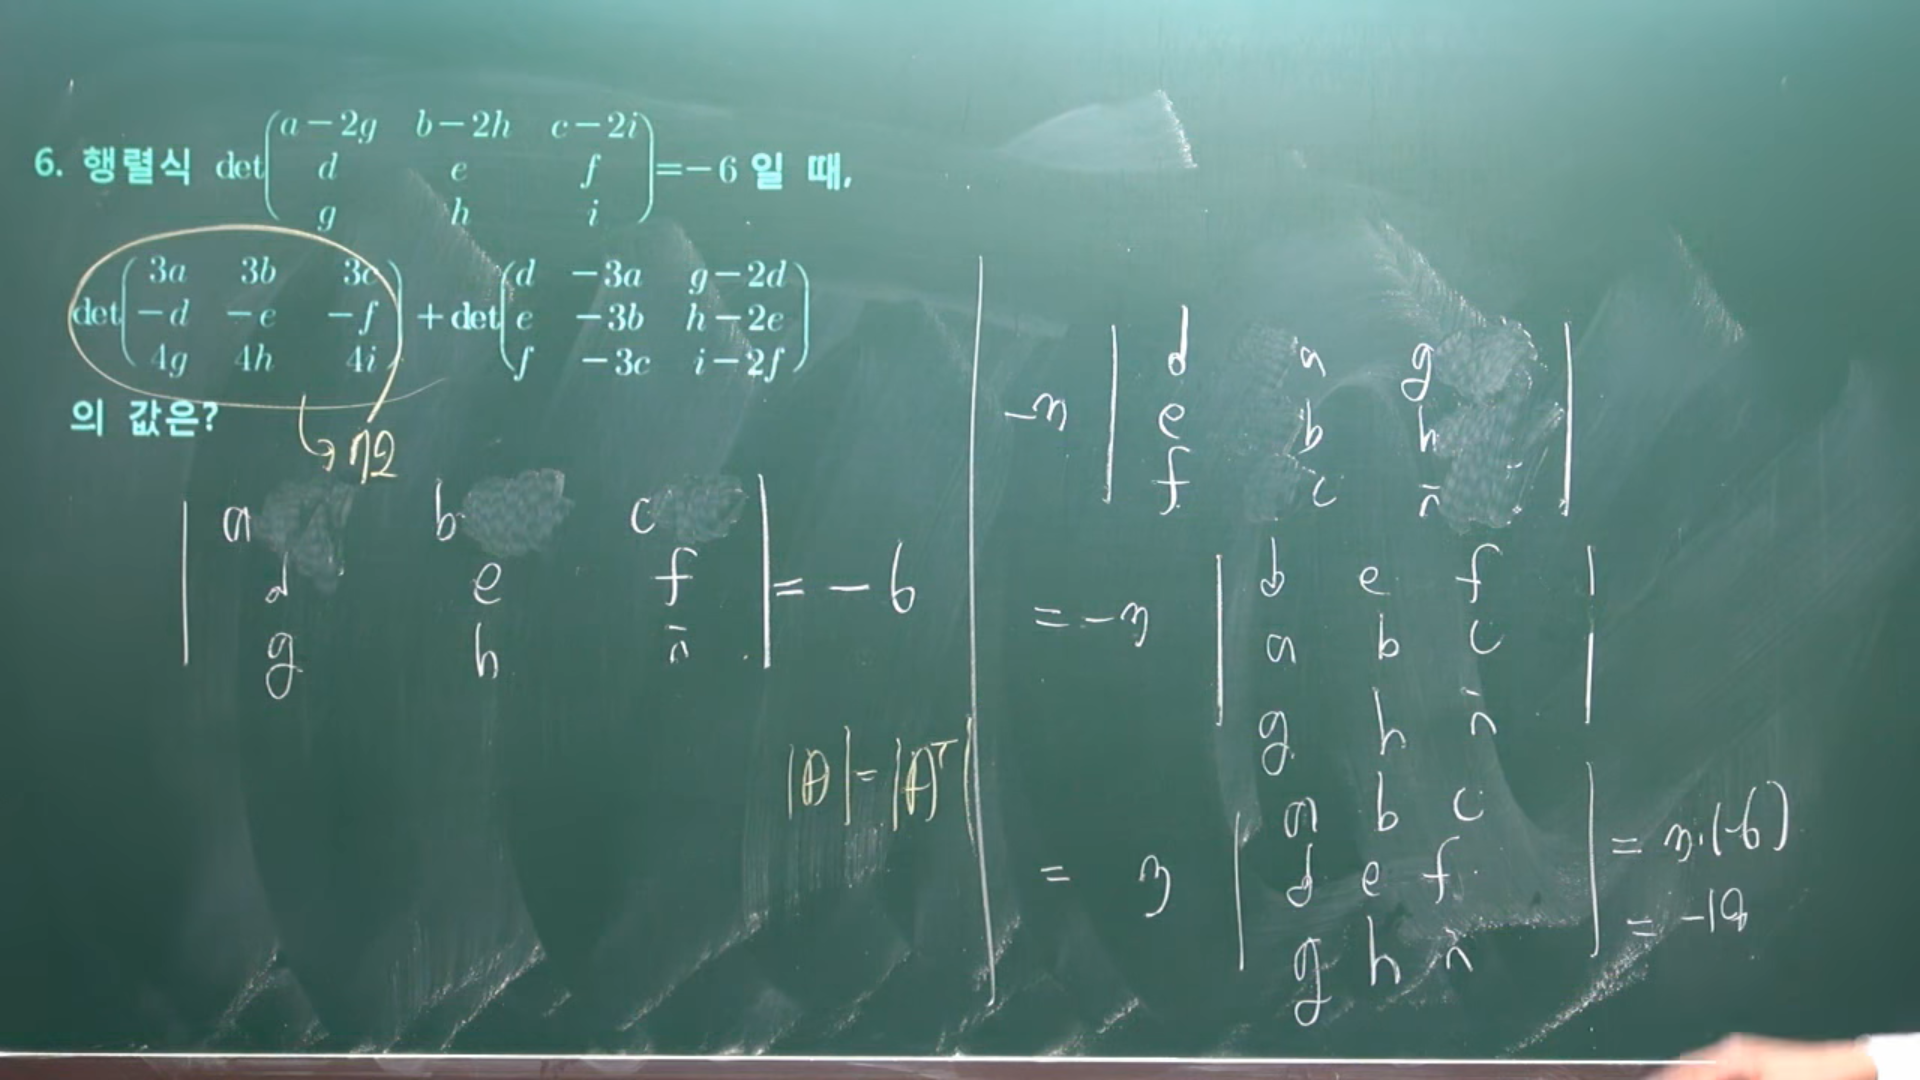 6. 행렬식 det(a-2g b-2h c-2i
d e f
g h i)=-6 일 때,
det(3a 3b 3c
-d -e -f
4g 4h 4i)
+det(d -3a g-2d
e -3b h-2e
f -3c i-2f)
의 값은?
↳ 72
|a b c
d e f
g h i| = -6
|A|=|A^T|
-3 |d a g
e b h
f c i|
= -3 |d e f
a b c
g h i|
= 3 |a b c
d e f
g h i|
= 3·(-6)
= -18